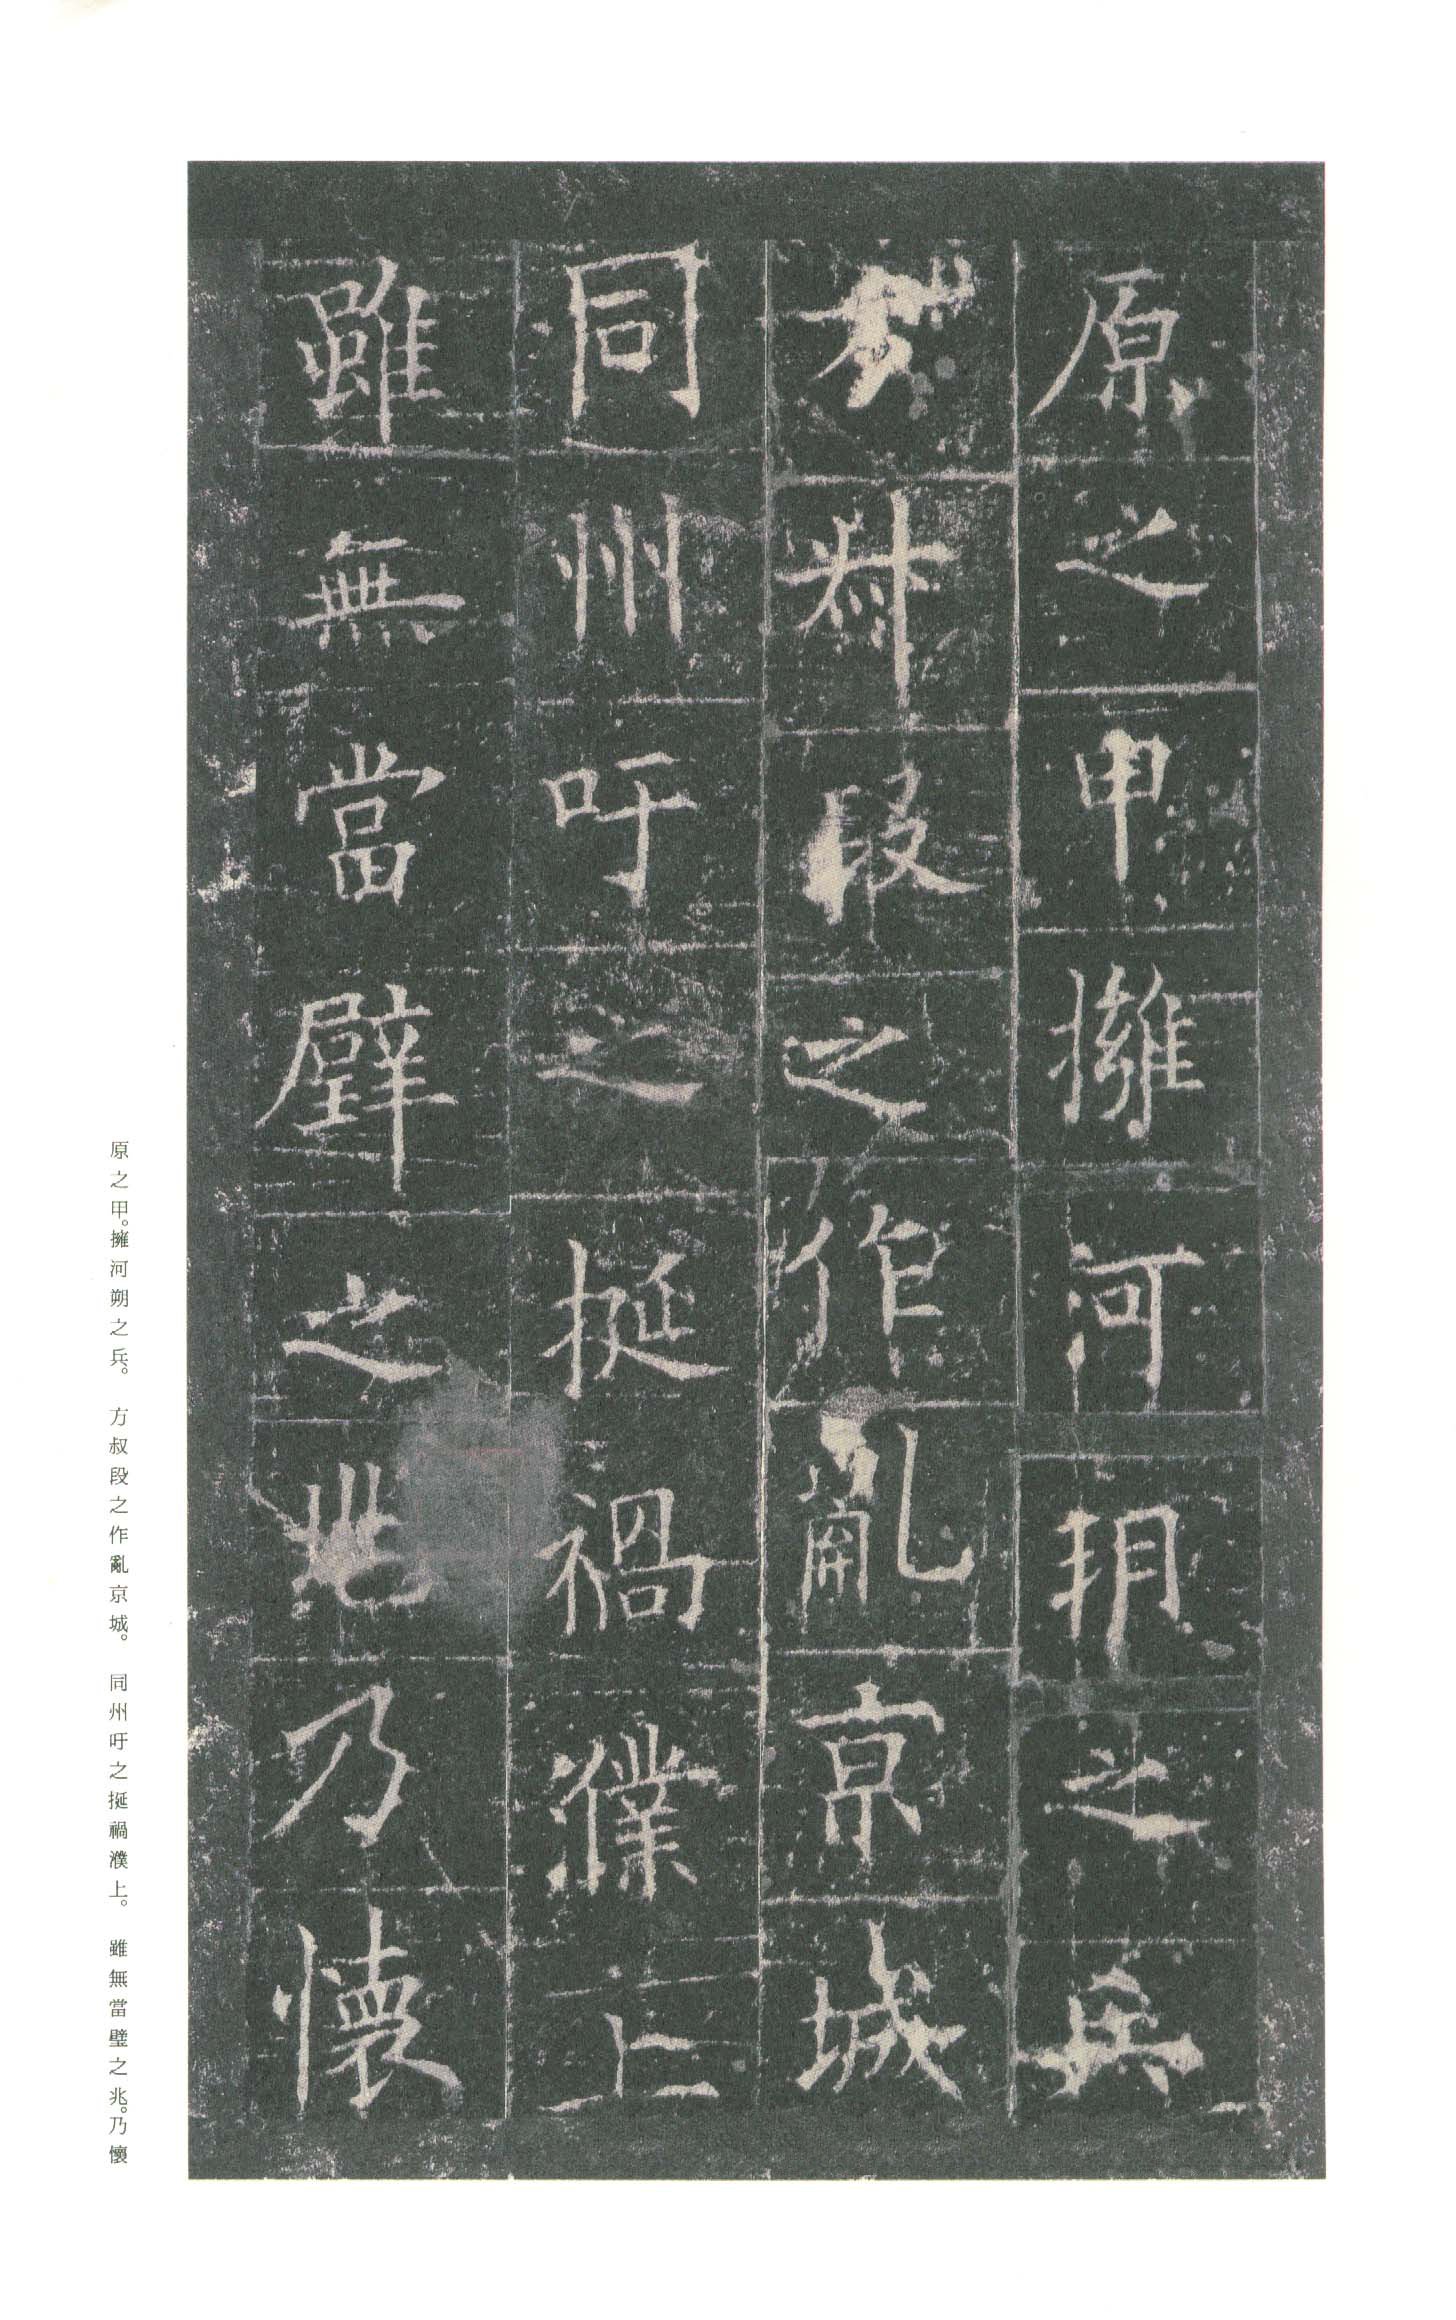 原之甲擁河朔之兵
方叔段之作亂京城
同州吁之挻禍濮上
雖無當璧之兆乃懷
原之甲。擁河朔之兵。 方叔段之作亂京城。 同州吁之挻禍濮上。 雖無當璧之兆。乃懷